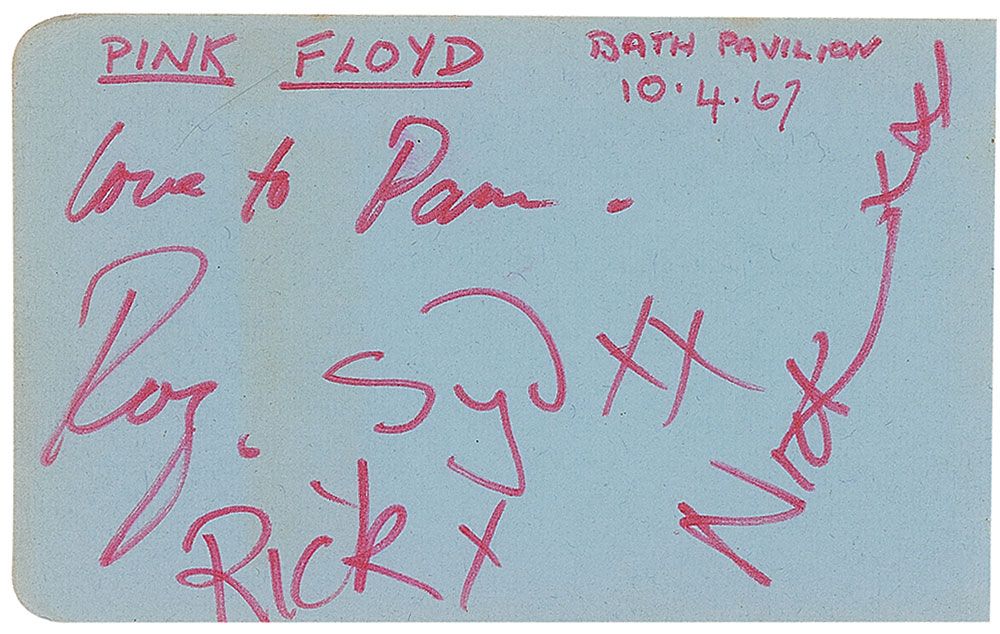 PINK FLOYD
BATH PAVILION
10.4.67
Love to Pam.
Rog.
Syd XX
Nick
RICK X